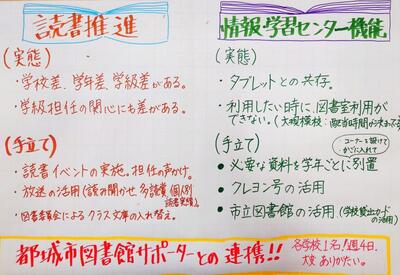 読書推進
(実態)
・学校差、学年差、学級差がある。
・学級担任の関心にも差がある。
(手立て)
・読書イベントの実施。担任の声かけ。
・放送の活用(読み聞かせ、多読賞(個人別
読書実績)。
・図書委員会によるクラス文庫の入れ替え。
情報・学習センター機能
(実態)
・タブレットとの共存。
・利用したい時に、図書室利用が
できない。(大規模校:
(手立て)
コーナーを設けて
かごに入れて
・必要な資料を学年ごとに別置
・クレヨン号の活用
・市立図書館の活用(学校貸出カードの
活用)
都城市図書館サポーターとの連携!!
各学校1名!週4日、
大変ありがたい。